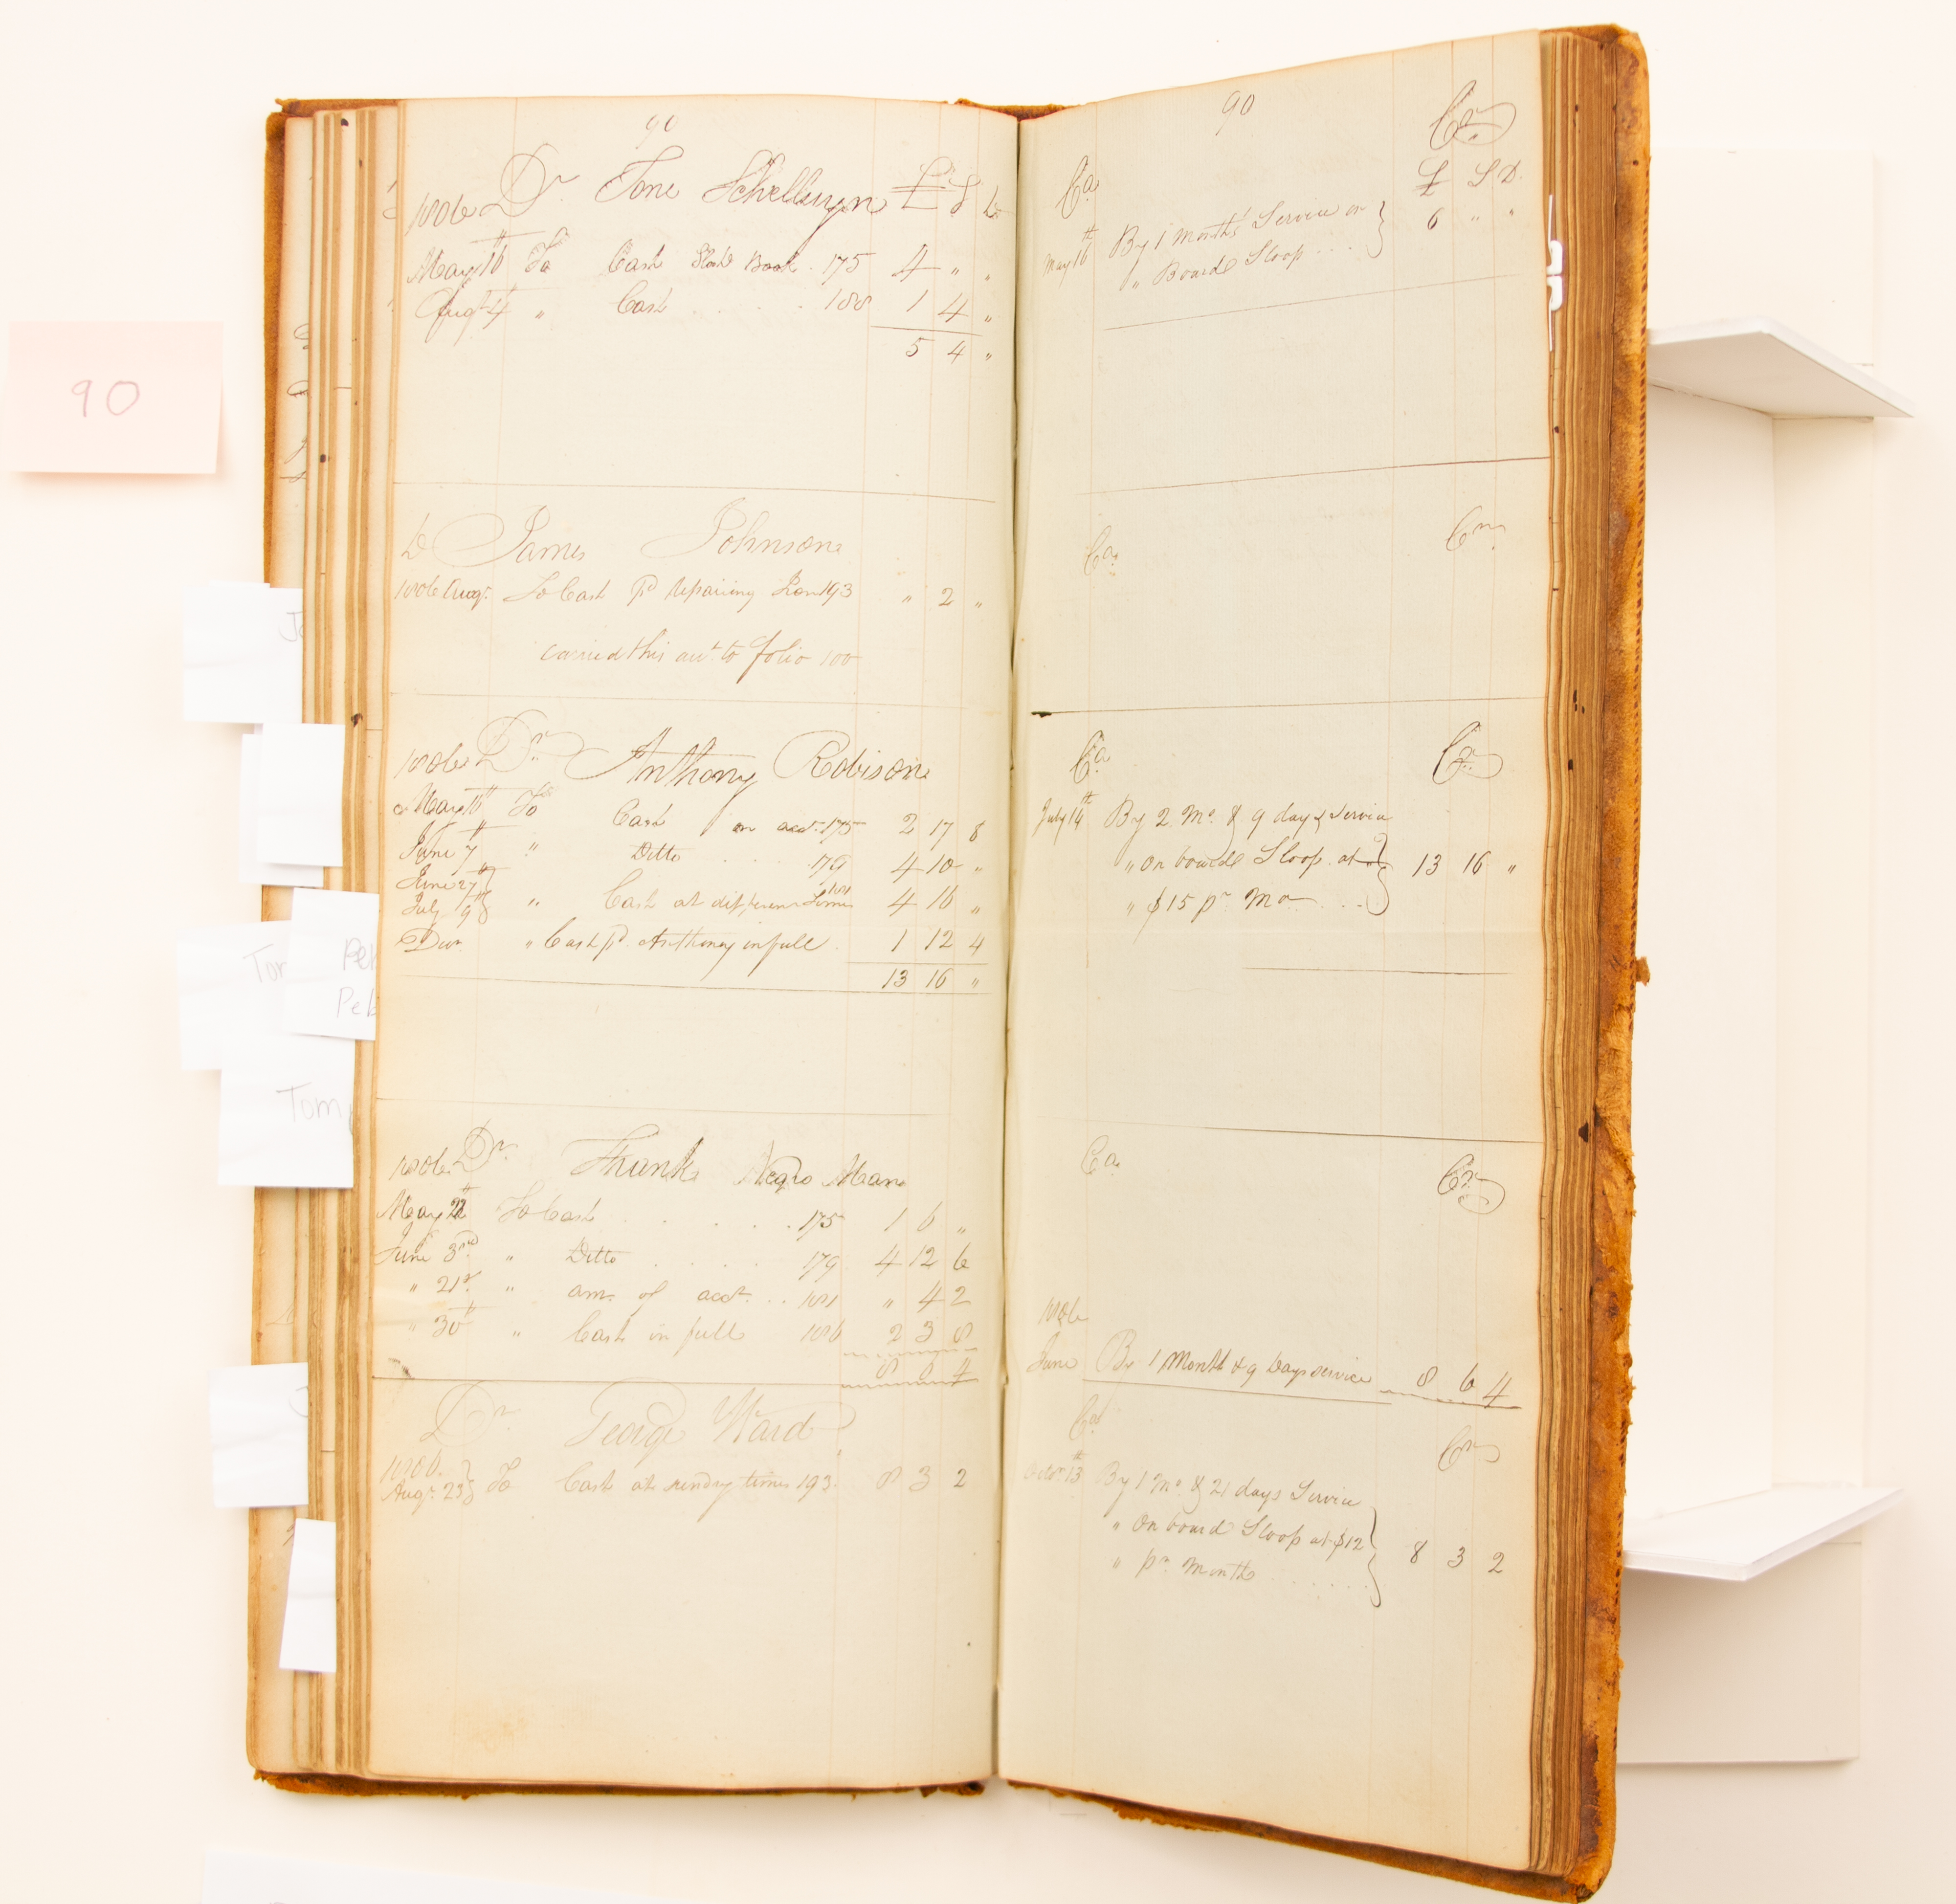 90
1806 Dr Tone Schellinyn £ S D
May 16th To Cash Stock Book 175 4 " "
Augt 4 " Cash . . . . 188 1 4 "
5 4 "
D James Johnson
1806 Augt To Cash pd repairing 193 " 2 "
carried this acct to folio 100
1806 Dr Anthony Robison
May 16th To Cash on acct. 175 2 17 8
June 7th " Ditto . . . . 179 4 10 "
June 27th
July 9th " Cash at different times 4 16 "
" Cash pd Anthony in full 1 12 4
13 16 "
1806 Dr Frank Negro Man
May To Cash . . . . . 175 1 6 "
June 3rd " Ditto . . . . 179 4 12 6
" 21st " am. of acct. . . 181 " 4 2
" 30th " Cash in full 186 2 3 8
8 6 4
Dr George Ward
1806
Augt 23 To Cash at sundry times 193 8 3 2
90
Cr
Ca £ S D
May 16th By 1 Month's Service on
" Board Sloop . . . 6 " "
Ca Cr
Ca Cr
July 14th By 2 Mo. & 9 days Service
" On board Sloop at 13 16 "
" $15 pr Mo . . .
Ca Cr
1806
June By 1 Month & 9 Days service 8 6 4
Ca Cr
Octor 13th By 1 Mo & 21 days Service
" On board Sloop at $12 8 3 2
" pr Month . . . . . .
90
Tom